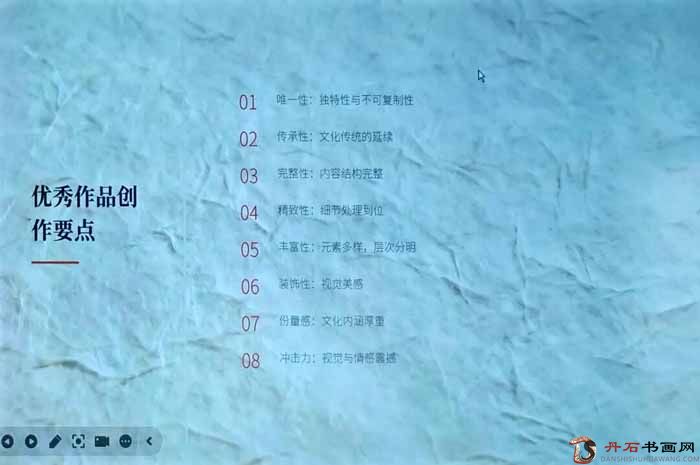 优秀作品创
作要点
01 唯一性：独特性与不可复制性
02 传承性：文化传统的延续
03 完整性：内容结构完整
04 精致性：细节处理到位
05 丰富性：元素多样，层次分明
06 装饰性：视觉美感
07 份量感：文化内涵厚重
08 冲击力：视觉与情感震撼
丹石书画网
DANSHISHUHUAWANG.COM